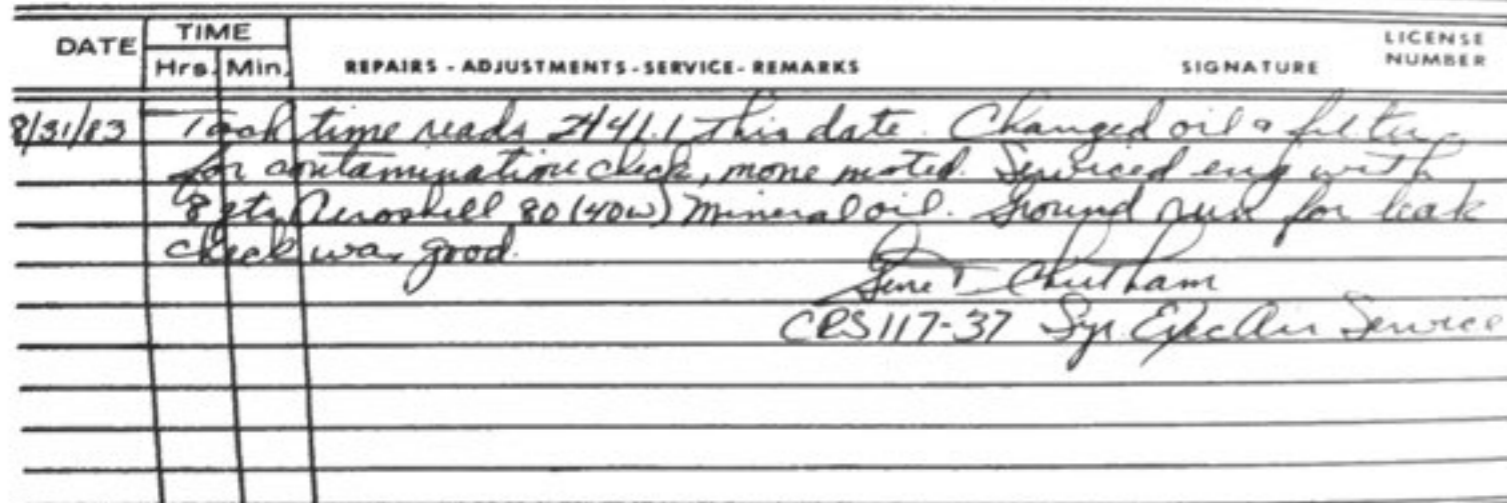 DATE TIME REPAIRS - ADJUSTMENTS - SERVICE - REMARKS SIGNATURE LICENSE NUMBER
Hrs. Min.
8/31/83 Tach time reads 2441.1 this date. Changed oil & filter
for contamination check, none noted. Serviced eng with
8 qts Aeroshell 80 (40w) Mineral oil. Ground run for leak
check was good.
Gene T. Chatham
CRS 117-37 Syr. Exec Air Service